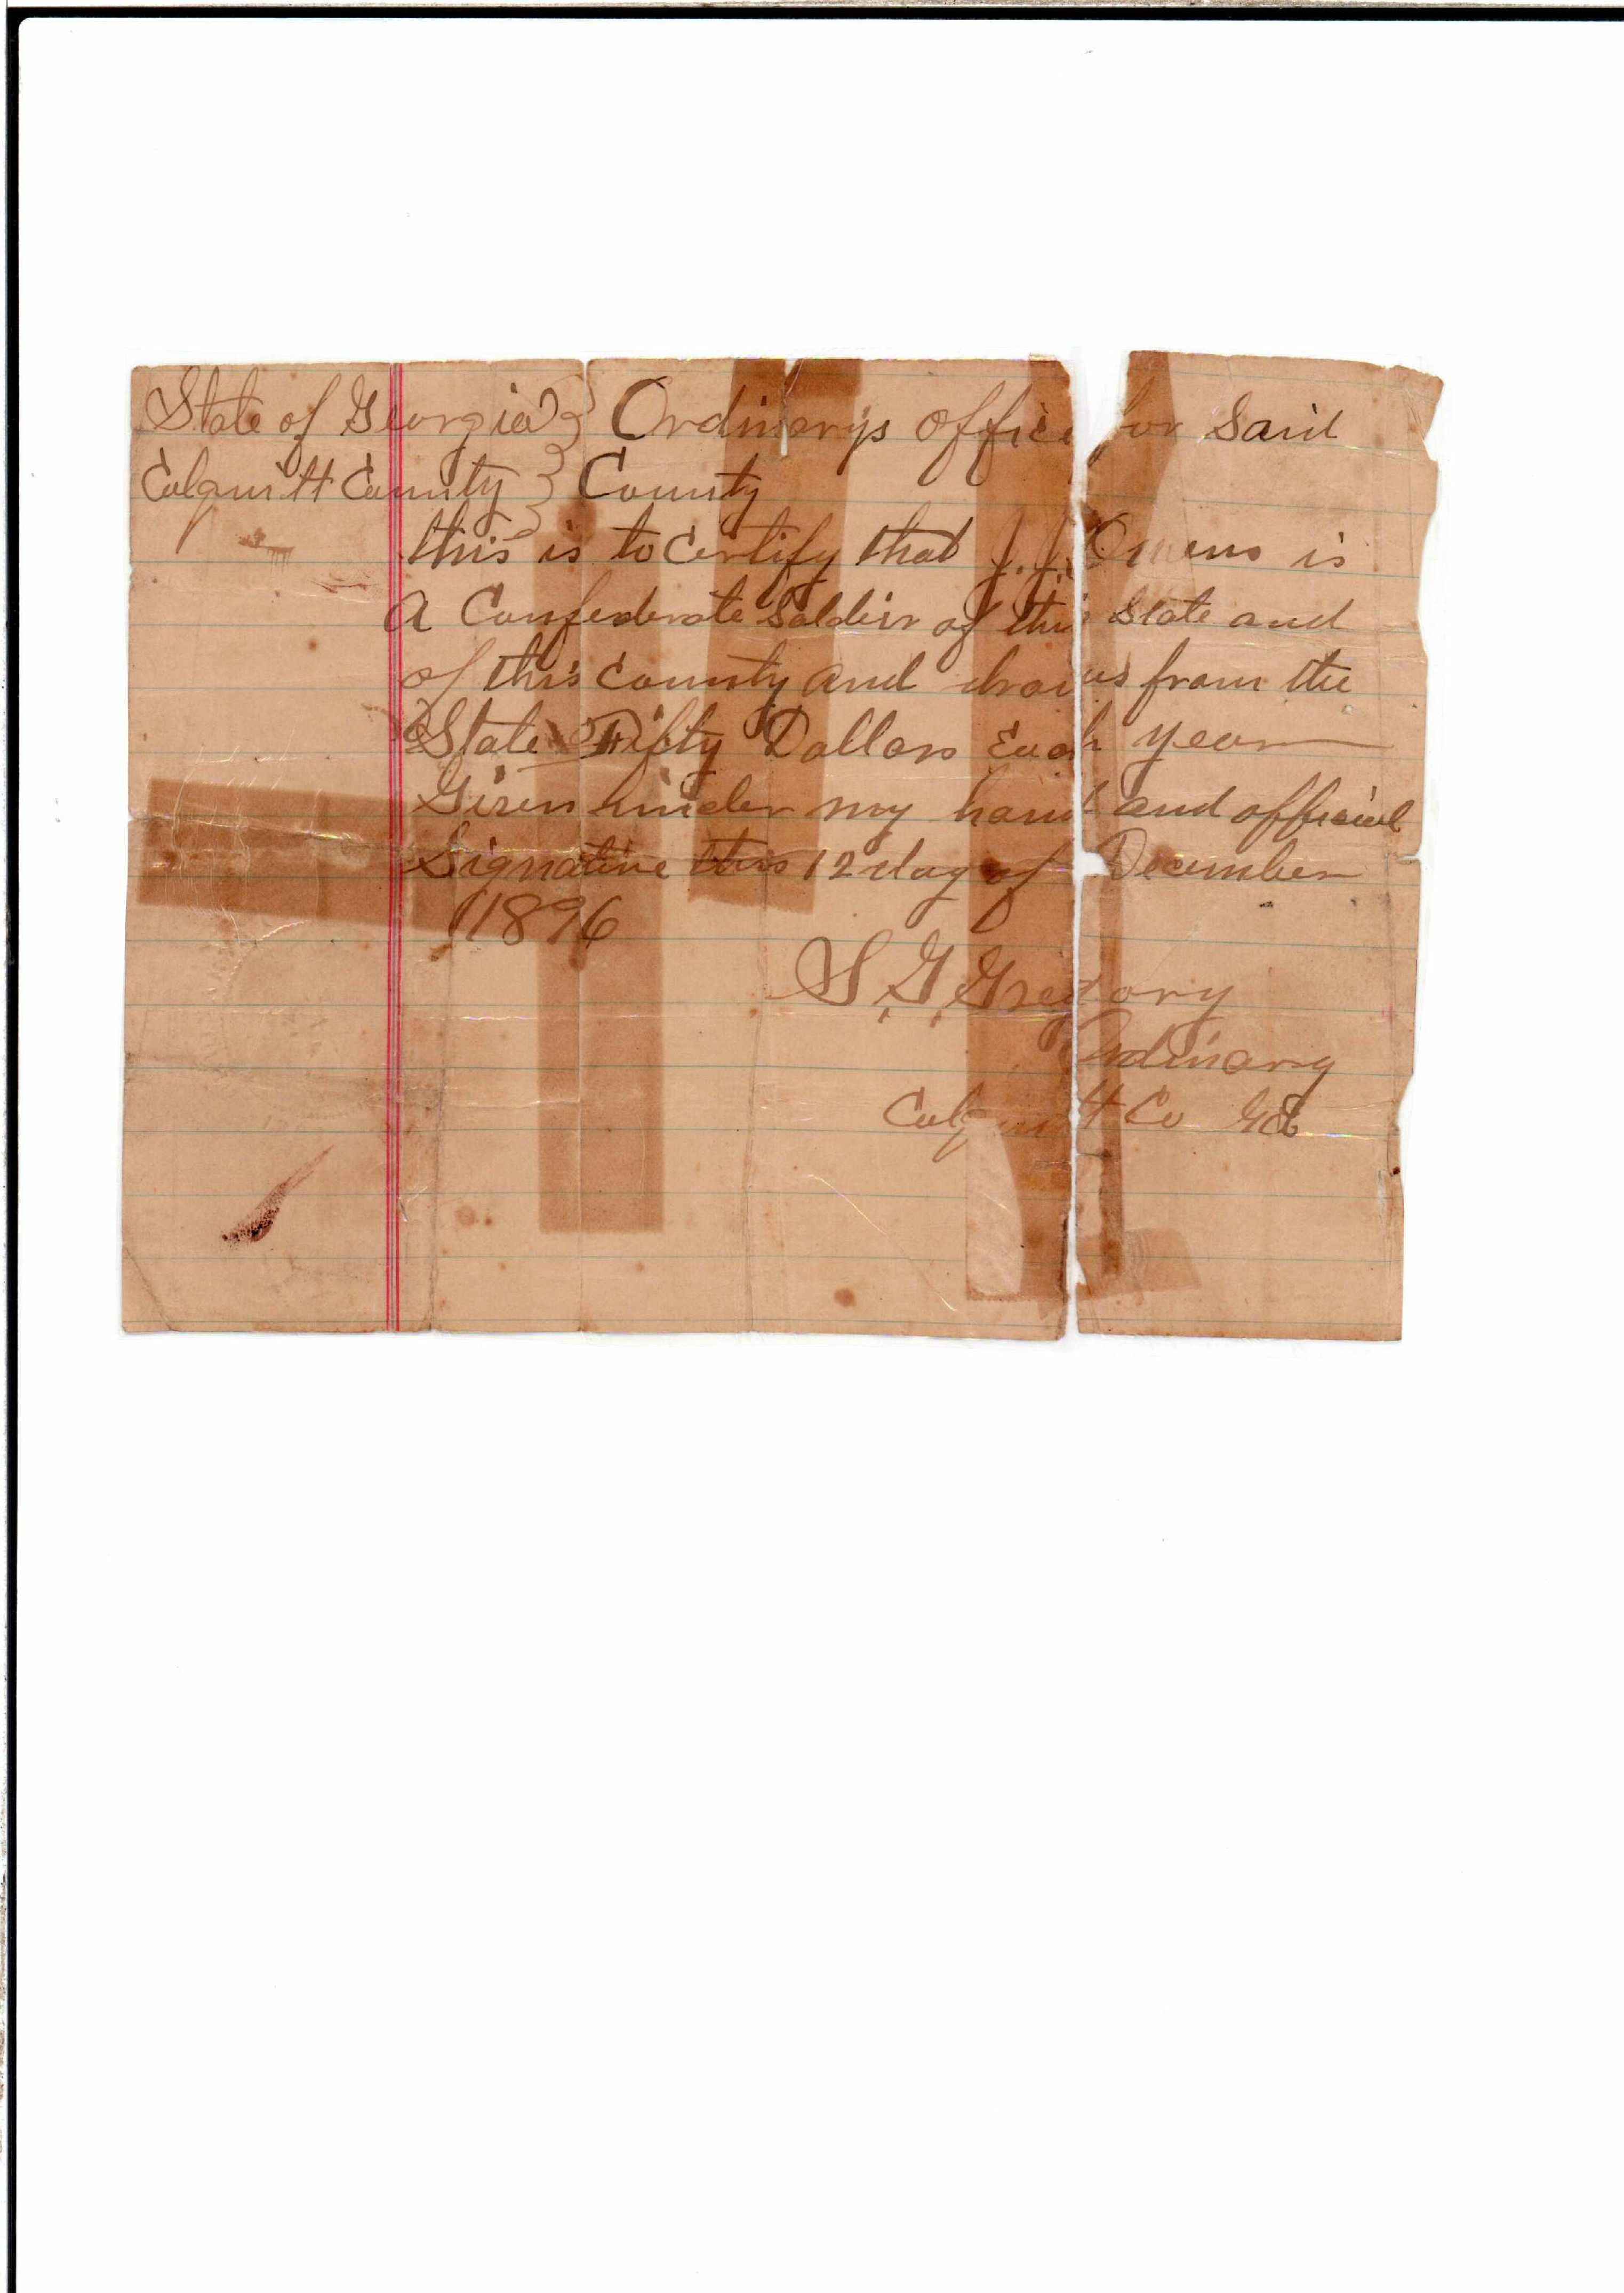 State of Georgia } Ordinarys office for Said
Colquitt County } County
this is to Certify that J. J. Owens is
A Confederate Soldeir of this State and
of this County and draws from the
State Fifty Dollars Each year
Given under my hand and official
Signature this 12 day of December
1896
S. G. Gregory
Ordinary
Colquitt Co Ga